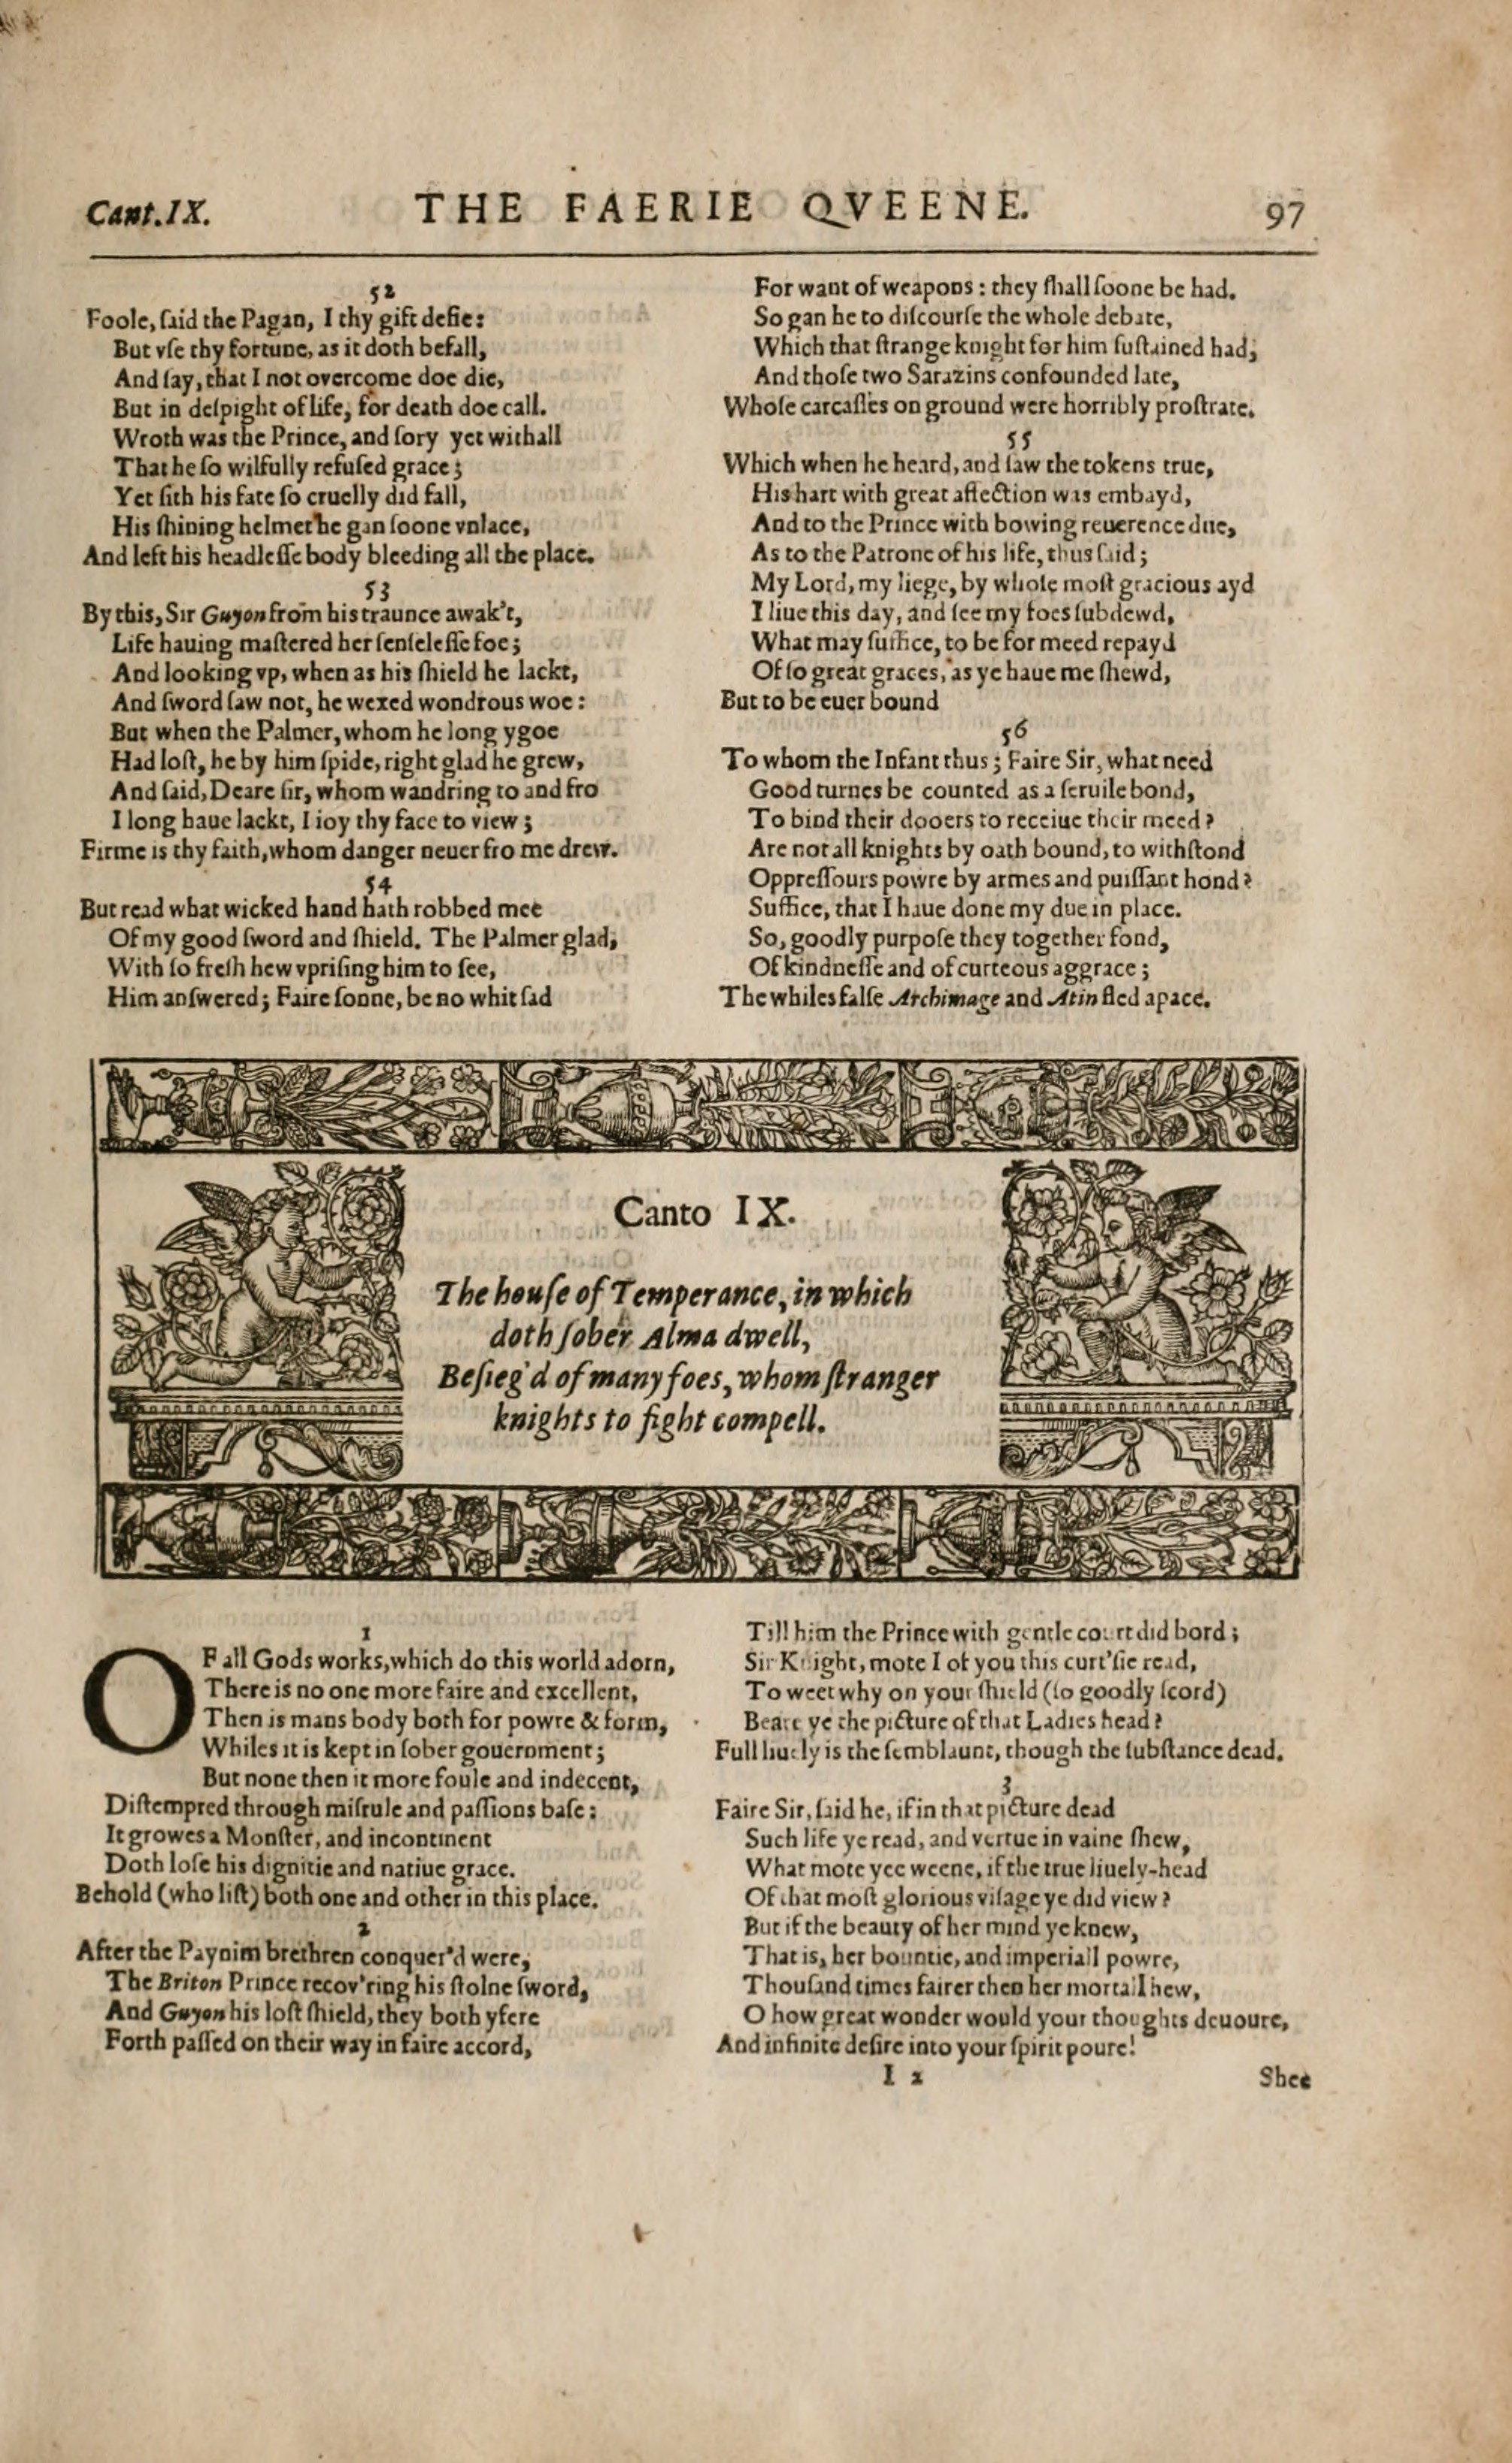 Cant.IX.
THE FAERIE QVEENE.
97
52
Foole, ſaid the Pagan, I thy gift defie:
But vſe thy fortune, as it doth befall,
And ſay, that I not overcome doe die,
But in deſpight of life, for death doe call.
Wroth was the Prince, and ſory yet withall
That he ſo wilfully refuſed grace;
Yet ſith his fate ſo cruelly did fall,
His ſhining helmet he gan ſoone vnlace,
And left his headleſſe body bleeding all the place.
53
By this, Sir Guyon from his traunce awak't,
Life hauing maſtered her ſenſeleſſe foe;
And looking vp, when as his ſhield he lackt,
And ſword ſaw not, he wexed wondrous woe:
But when the Palmer, whom he long ygoe
Had loſt, he by him ſpide, right glad he grew,
And ſaid, Deare ſir, whom wandring to and fro
I long haue lackt, I ioy thy face to view;
Firme is thy faith, whom danger neuer fro me drew.
54
But read what wicked hand hath robbed mee
Of my good ſword and ſhield. The Palmer glad,
With ſo freſh hew vpriſing him to ſee,
Him anſwered; Faire ſonne, be no whit ſad
For want of weapons: they ſhall ſoone be had.
So gan he to diſcourſe the whole debate,
Which that ſtrange knight for him ſuſtained had,
And thoſe two Sarazins confounded late,
Whoſe carcaſſes on ground were horribly proſtrate.
55
Which when he heard, and ſaw the tokens true,
His hart with great affection was embayd,
And to the Prince with bowing reuerence due,
As to the Patrone of his life, thus ſaid;
My Lord, my liege, by whoſe moſt gracious ayd
I liue this day, and ſee my foes ſubdewd,
What may ſuffice, to be for meed repayd
Of ſo great graces, as ye haue me ſhewd,
But to be euer bound
56
To whom the Infant thus; Faire Sir, what need
Good turnes be counted as a ſeruile bond,
To bind their dooers to receiue their meed?
Are not all knights by oath bound, to withſtond
Oppreſſours powre by armes and puiſſant hond?
Suffice, that I haue done my due in place.
So, goodly purpoſe they together fond,
Of kindneſſe and of curteous aggrace;
The whiles falſe Archimage and Atin fled apace.
Canto IX.
The houſe of Temperance, in which
doth ſober Alma dwell,
Beſieg'd of many foes, whom ſtranger
knights to fight compell.
1
OF all Gods works, which do this world adorn,
There is no one more faire and excellent,
Then is mans body both for powre & form,
Whiles it is kept in ſober gouernment;
But none then it more foule and indecent,
Diſtempred through miſrule and paſſions baſe:
It growes a Monſter, and incontinent
Doth loſe his dignitie and natiue grace.
Behold (who liſt) both one and other in this place.
2
After the Paynim brethren conquer'd were,
The Briton Prince recov'ring his ſtolne ſword,
And Guyon his loſt ſhield, they both yfere
Forth paſſed on their way in faire accord,
Till him the Prince with gentle court did bord;
Sir Knight, mote I of you this curt'ſie read,
To weet why on your ſhield (ſo goodly ſcord)
Beare ye the picture of that Ladies head?
Full liuely is the ſemblaunt, though the ſubſtance dead.
3
Faire Sir, ſaid he, if in that picture dead
Such life ye read, and vertue in vaine ſhew,
What mote yee weene, if the true liuely-head
Of that moſt glorious viſage ye did view?
But if the beauty of her mind ye knew,
That is, her bountie, and imperiall powre,
Thouſand times fairer then her mortall hew,
O how great wonder would your thoughts deuoure,
And infinite deſire into your ſpirit poure!
I 2
Shee